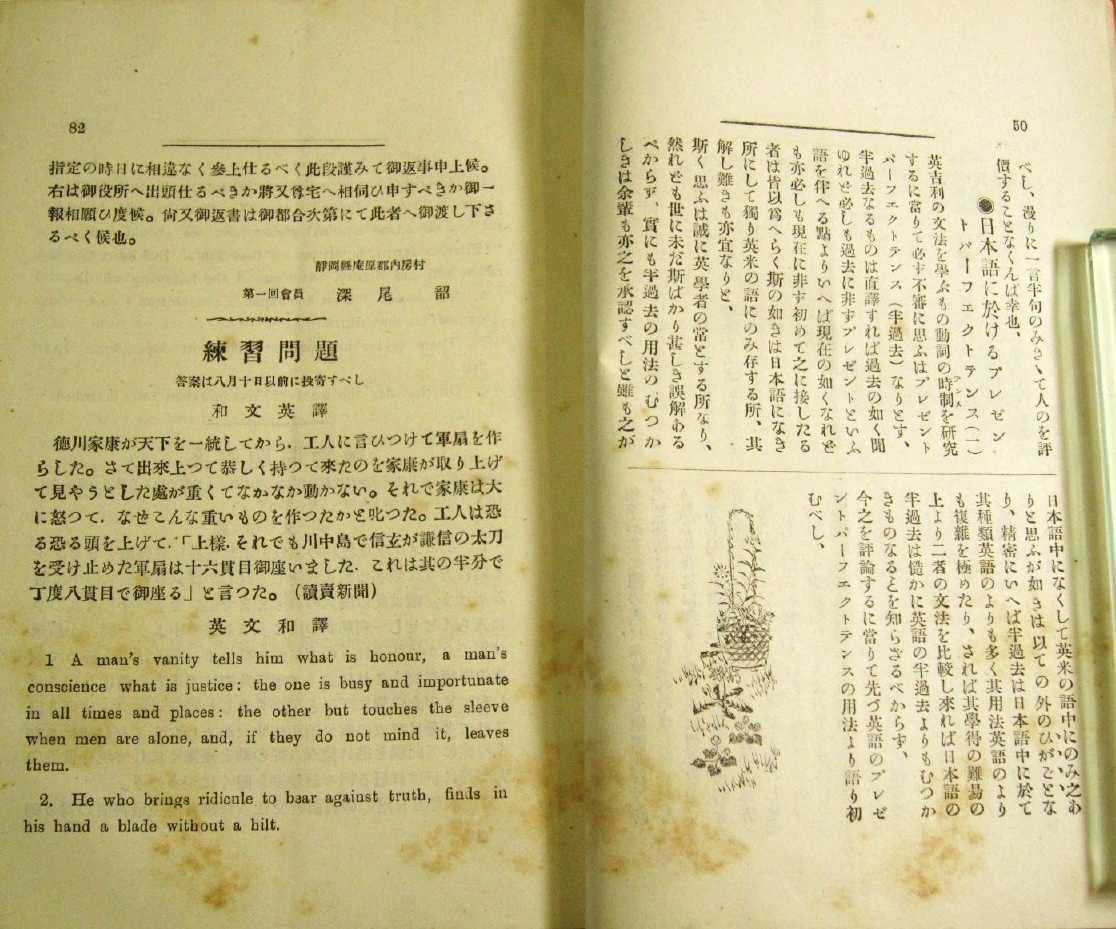 82
指定の時日に相違なく參上仕るべく此段謹みて御返事申上候。
右は御役所へ出頭仕るべきか將又尊宅へ相伺ひ申すべきか御一
報相願ひ度候。尙又御返書は御都合次第にて此者へ御渡し下さ
るべく候也。
靜岡縣庵原郡內房村
第一回會員 深尾 韶
練習問題
答案は八月十日以前に投寄すべし
和文英譯
德川家康が天下を一統してから、工人に言ひつけて軍扇を作
らした。さて出來上つて恭しく持つて來たのを家康が取り上げ
て見やうとした處が重くてなかなか動かない。それで家康は大
に怒つて、なぜこんな重いものを作つたかと叱つた。工人は恐
る恐る頭を上げて、「上樣、それでも川中島で信玄が謙信の太刀
を受け止めた軍扇は十六貫目御座いました、これは其の半分で
丁度八貫目で御座る」と言つた。(讀賣新聞)
英文和譯
1 A man's vanity tells him what is honour, a man's
conscience what is justice: the one is busy and importunate
in all times and places: the other but touches the sleeve
when men are alone, and, if they do not mind it, leaves
them.
2. He who brings ridicule to bear against truth, finds in
his hand a blade without a hilt.
50
べし、漫りに一言半句のみさへて人のを評
價することなくんば幸也、
●日本語に於けるプレゼン
トパーフェクトテンス(一)
英吉利の文法を學ぶもの動詞の時制テンスを研究
するに當りて必ず不審に思ふはプレゼント
パーフエクトテンス(半過去)なりとす、
半過去なるものは直譯すれば過去の如く聞
ゆれど必しも過去に非すプレゼントといふ
語を伴へる點よりいへば現在の如くなれど
も亦必しも現在に非す初めて之に接したる
者は皆以爲へらく斯の如きは日本語になき
所にして獨り英米の語にのみ存する所、其
解し難きも亦宜なりと、
斯く思ふは誠に英學者の常とする所なり、
然れども世に未だ斯ばかり甚しき誤解ある
べからず、實にも半過去の用法のむつか
しきは余輩も亦之を承認すべしと雖も之が
日本語中になくして英米の語中にのみ之あ
りと思ふが如きは以ての外のひがごとな
り、精密にいへば半過去は日本語中に於て
其種類英語のよりも多く其用法英語のより
も複雜を極めたり、されば其學得の難易の
上より二者の文法を比較し來れば日本語の
半過去は慥かに英語の半過去よりもむつか
きものなることを知らざるべからず、
今之を評論するに當りて先づ英語のプレゼ
ントパーフエクトテンスの用法より語り初
むべし、